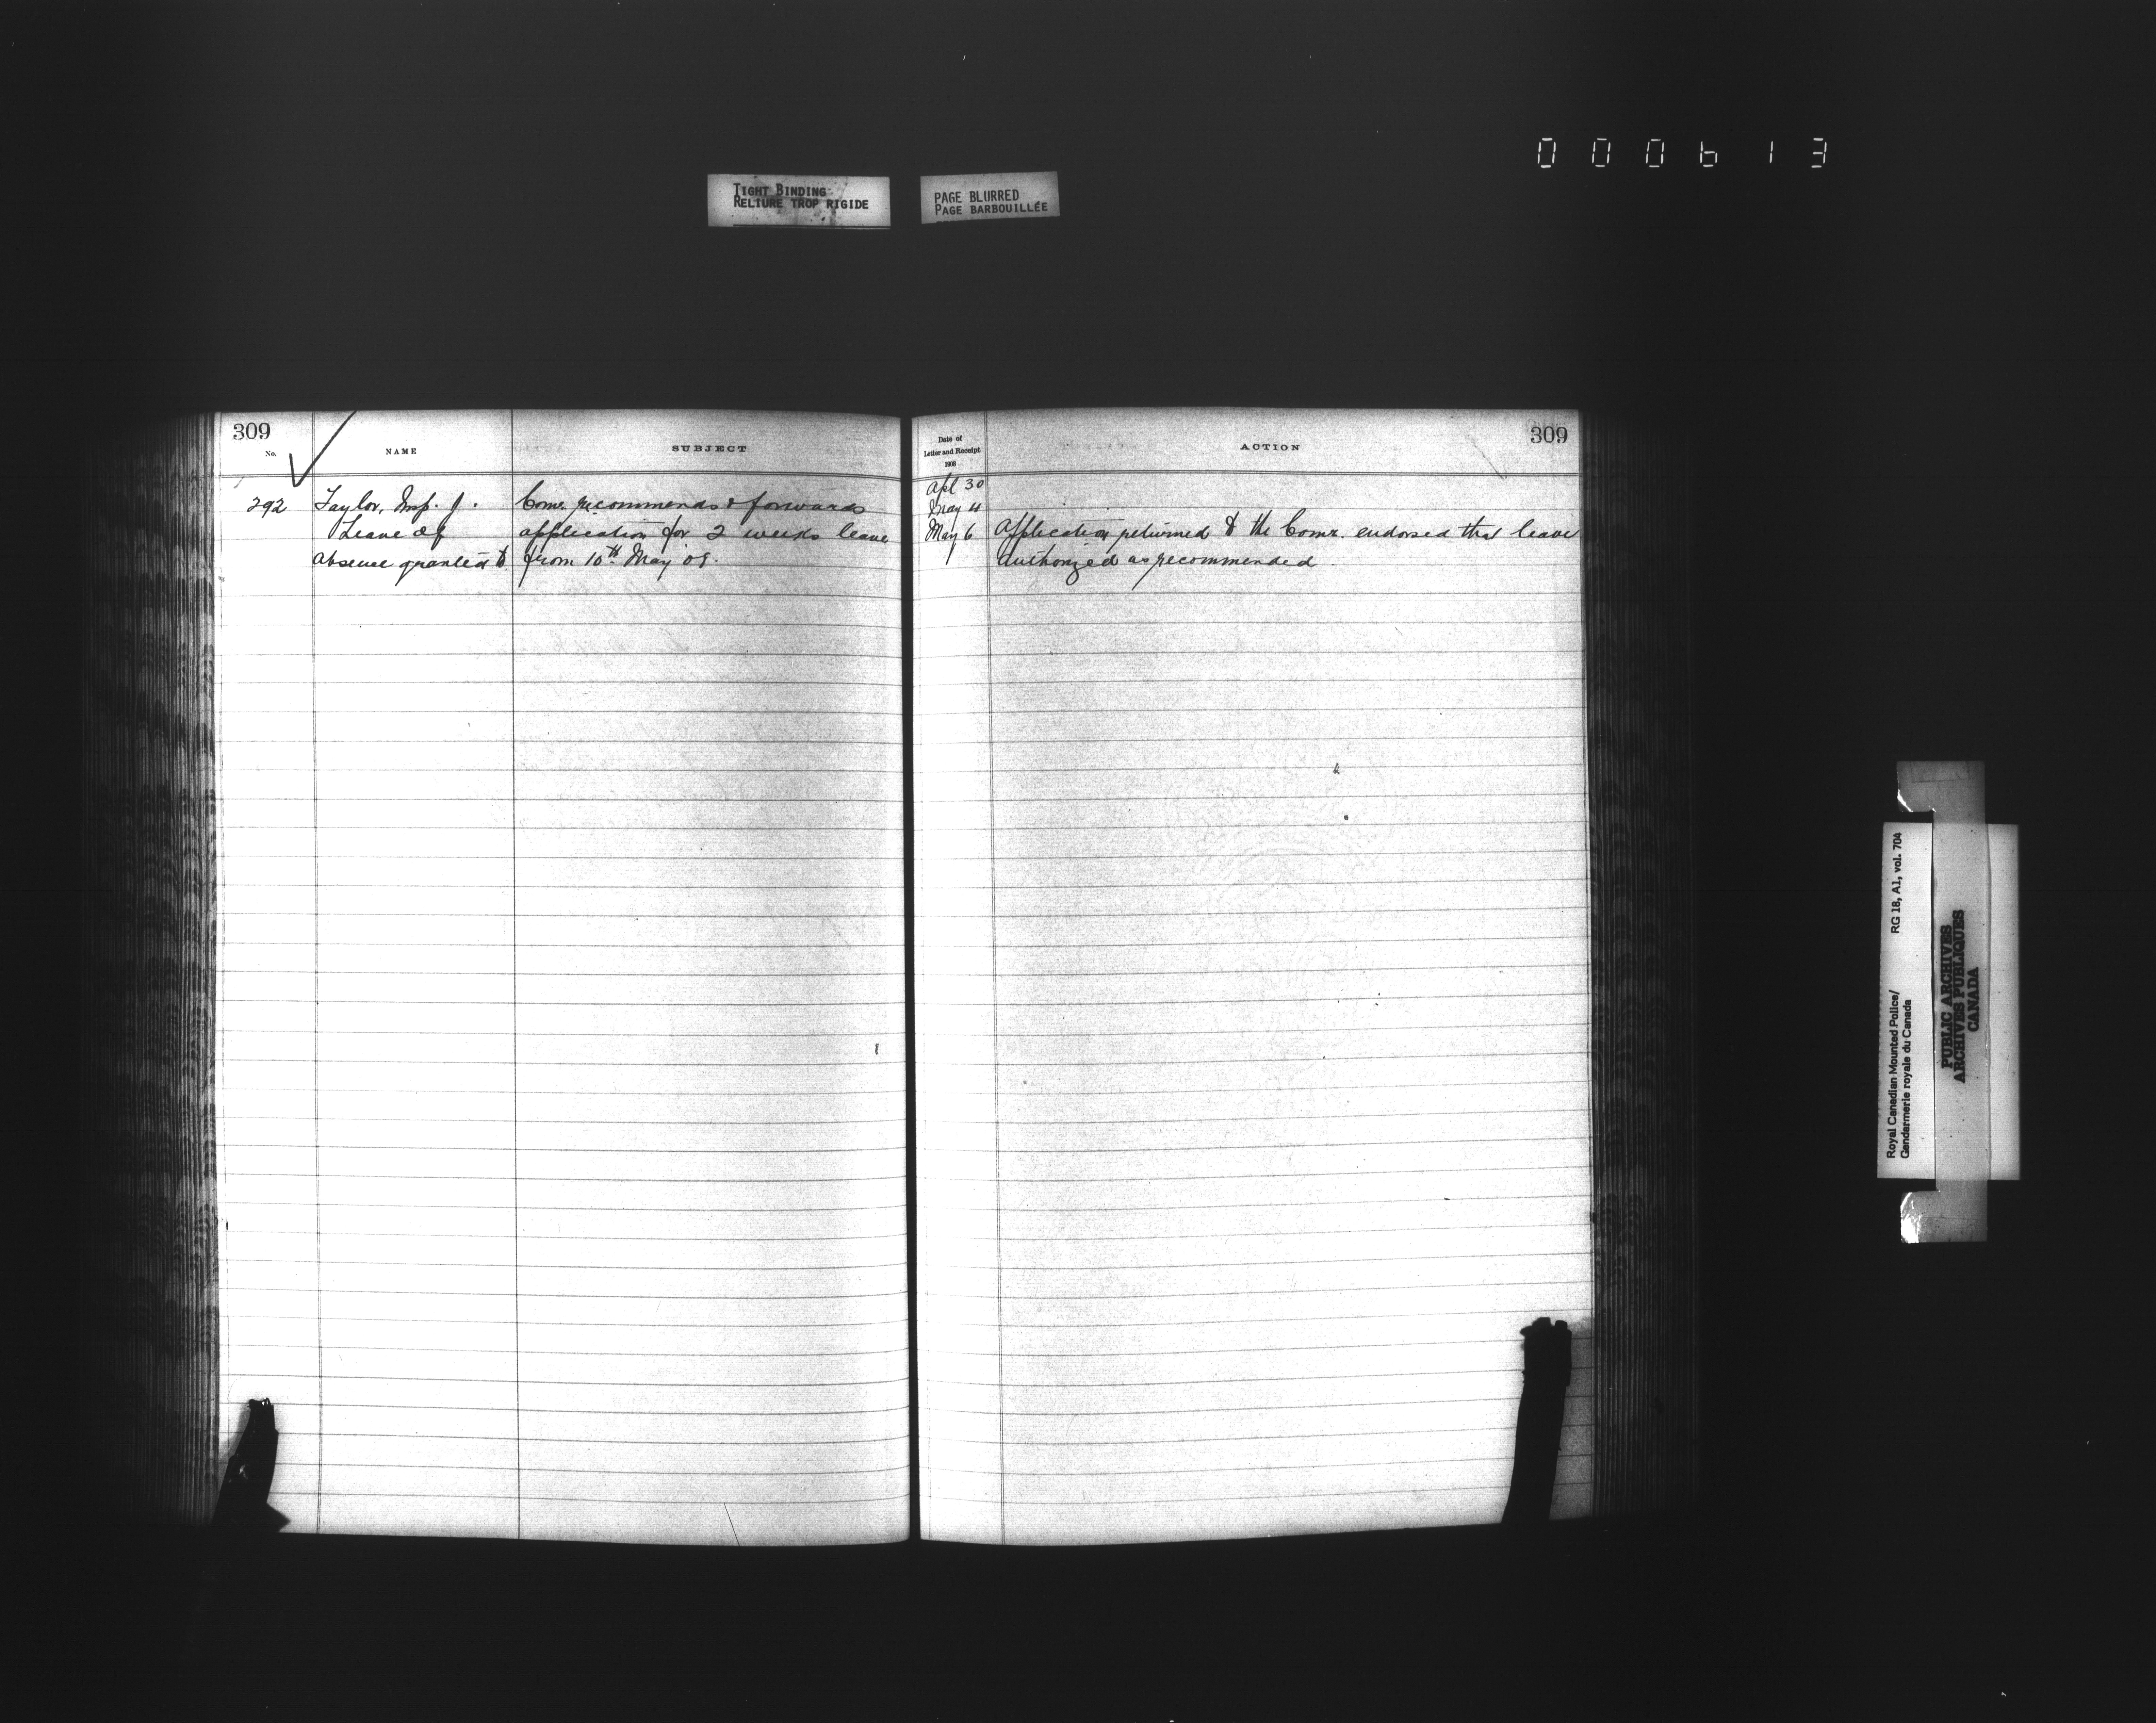 000613
TIGHT BINDING
RELIURE TROP RIGIDE
PAGE BLURRED
PAGE BARBOUILLÉE
309
No.
NAME
SUBJECT
292
Taylor, Insp. J.
Leave of
absence granted to
Comr. recommends & forwards
application for 2 weeks leave
from 10th May 08.
Date of
Letter and Receipt
1908
ACTION
309
Apl 30
May 4
May 6
Application returned to the Comr. endorsed that leave
authorized as recommended.
Royal Canadian Mounted Police/
Gendarmerie royale du Canada
RG 18, A1, vol. 704
PUBLIC ARCHIVES
ARCHIVES PUBLIQUES
CANADA